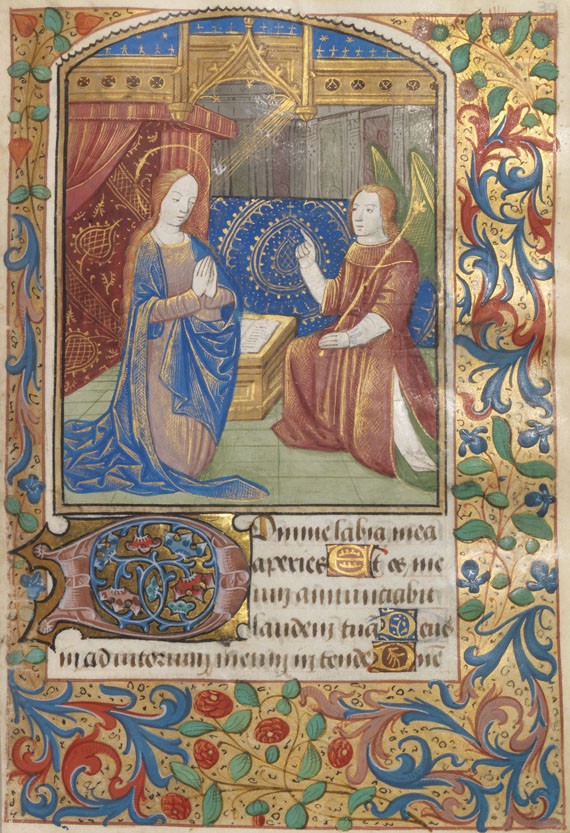 Domine labia mea
aperies Et os me
um annunciabit
laudem tuā Deus
in adiutorium meum in tende Dñe